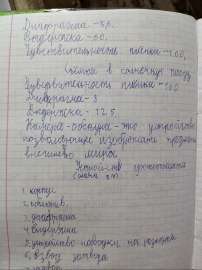 Диафрагма - 5,6.
Выдержка - 60.
Чувствительность пленки - 100,
съёмка в солнечную погоду
Чувствительность пленки - 100
Диафрагма - 8
Выдержка - 125.
Камера-обскура - это устройство
позволяющее изображать предметы
внешнего мира
1. корпус
2. объектив.
3. диафрагма
4. выдержка
5. устройство наводки на резкость
6. взвод затвора